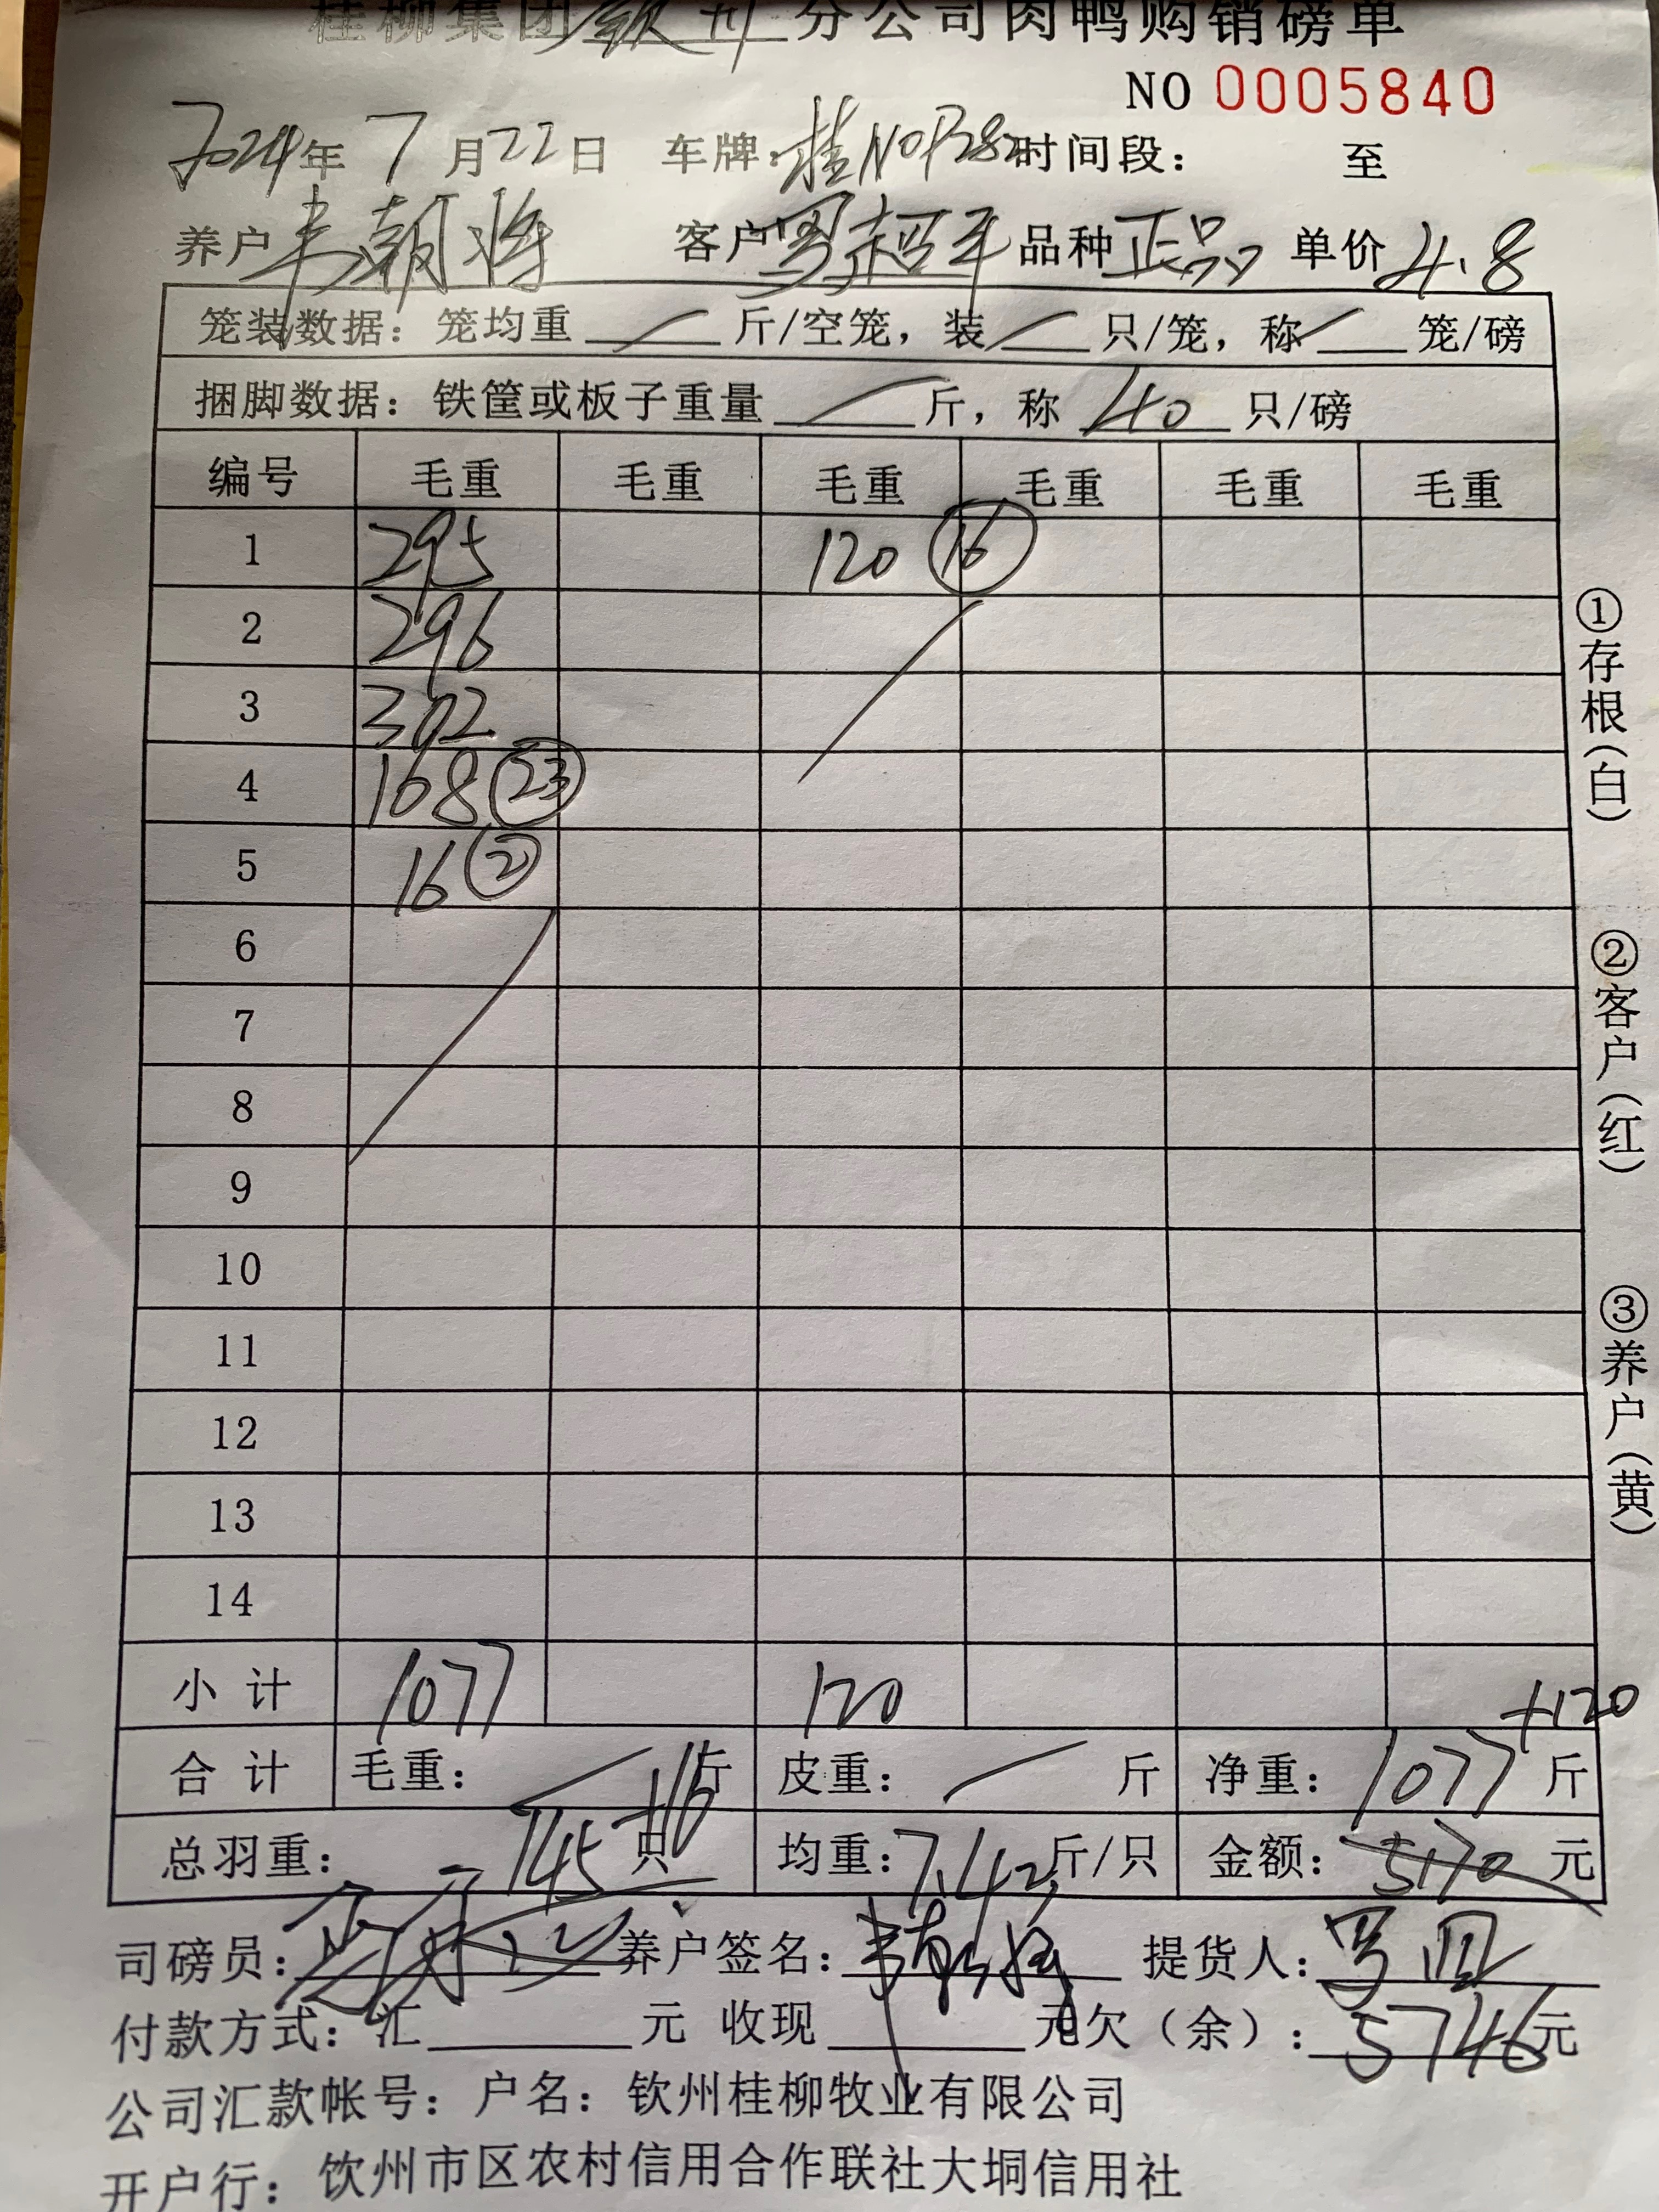 桂柳集团钦州分公司肉鸭购销磅单
NO 0005840
2024年 7月22日 车牌: 时间段: 至
养户韦朝将 客户罗超平 品种正品 单价4.8
笼装数据: 笼均重 斤/空笼, 装 只/笼, 称 笼/磅
捆脚数据: 铁筐或板子重量 斤, 称 40 只/磅
编号 毛重 毛重 毛重 毛重 毛重 毛重
1 295 120 16
2 296
3 302
4 168 23
5 16 2
6
7
8
9
10
11
12
13
14
小计 1077 120 +120
合计 毛重: 斤 皮重: 斤 净重: 1077斤
总羽重: 145+16只 均重:7.42斤/只 金额: 5170元
司磅员: 养户签名: 提货人:
付款方式: 汇 元 收现 元 欠(余): 5746元
公司汇款帐号: 户名: 钦州桂柳牧业有限公司
开户行: 钦州市区农村信用合作联社大垌信用社
①存根(白)
②客户(红)
③养户(黄)